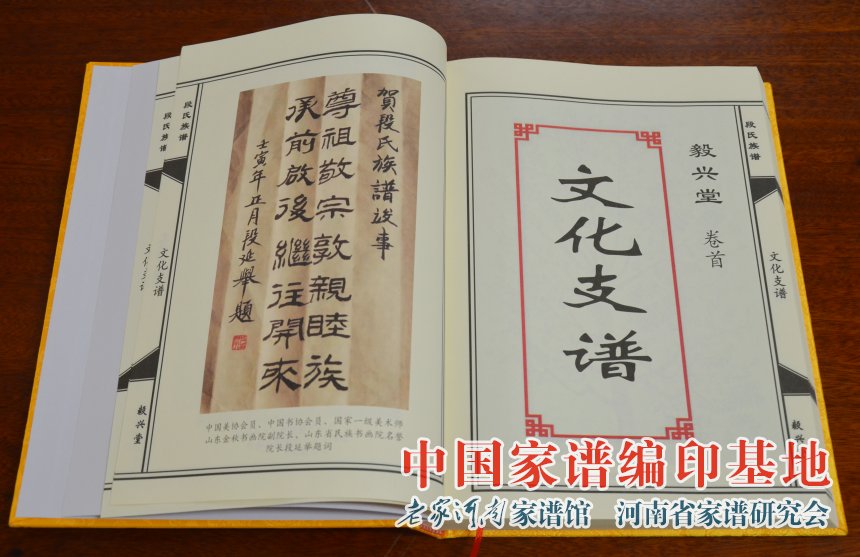 段氏族谱
文化支谱
毅兴堂
段氏族谱
賀段氏族譜竣事
尊祖敬宗敦親睦族
承前啟後繼往開來
壬寅年正月段延舉題
中国美协会员、中国书协会员、国家一级美术师
山东金秋书画院副院长、山东省民族书画院名誉
院长段延举题词
毅兴堂 卷首
文化支谱
段氏族谱
文化支谱
毅兴堂
中国家谱编印基地
老家河南家谱馆 河南省家谱研究会